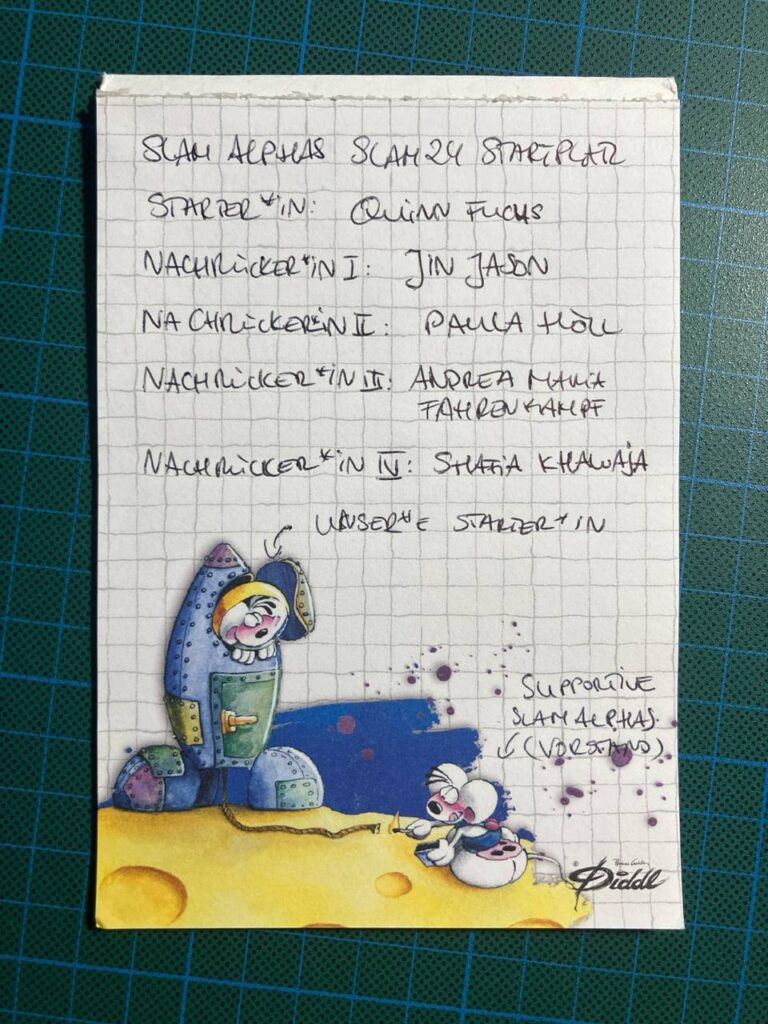 SLAM ALPHAS SLAM24 STARTPLATZ
STARTER*iN: QUINN FUCHS
NACHRÜCKER*iN I: JIN JASON
NACHRÜCKER*iN II: PAULA HÖLL
NACHRÜCKER*iN III: ANDREA MARIA
FAHRENKAMPF
NACHRÜCKER*iN IV: SHAFiA KHAWAJA
UNSER*E STARTER*IN
SUPPORTIVE
SLAM ALPHAS
(VORSTAND)
© Diddl